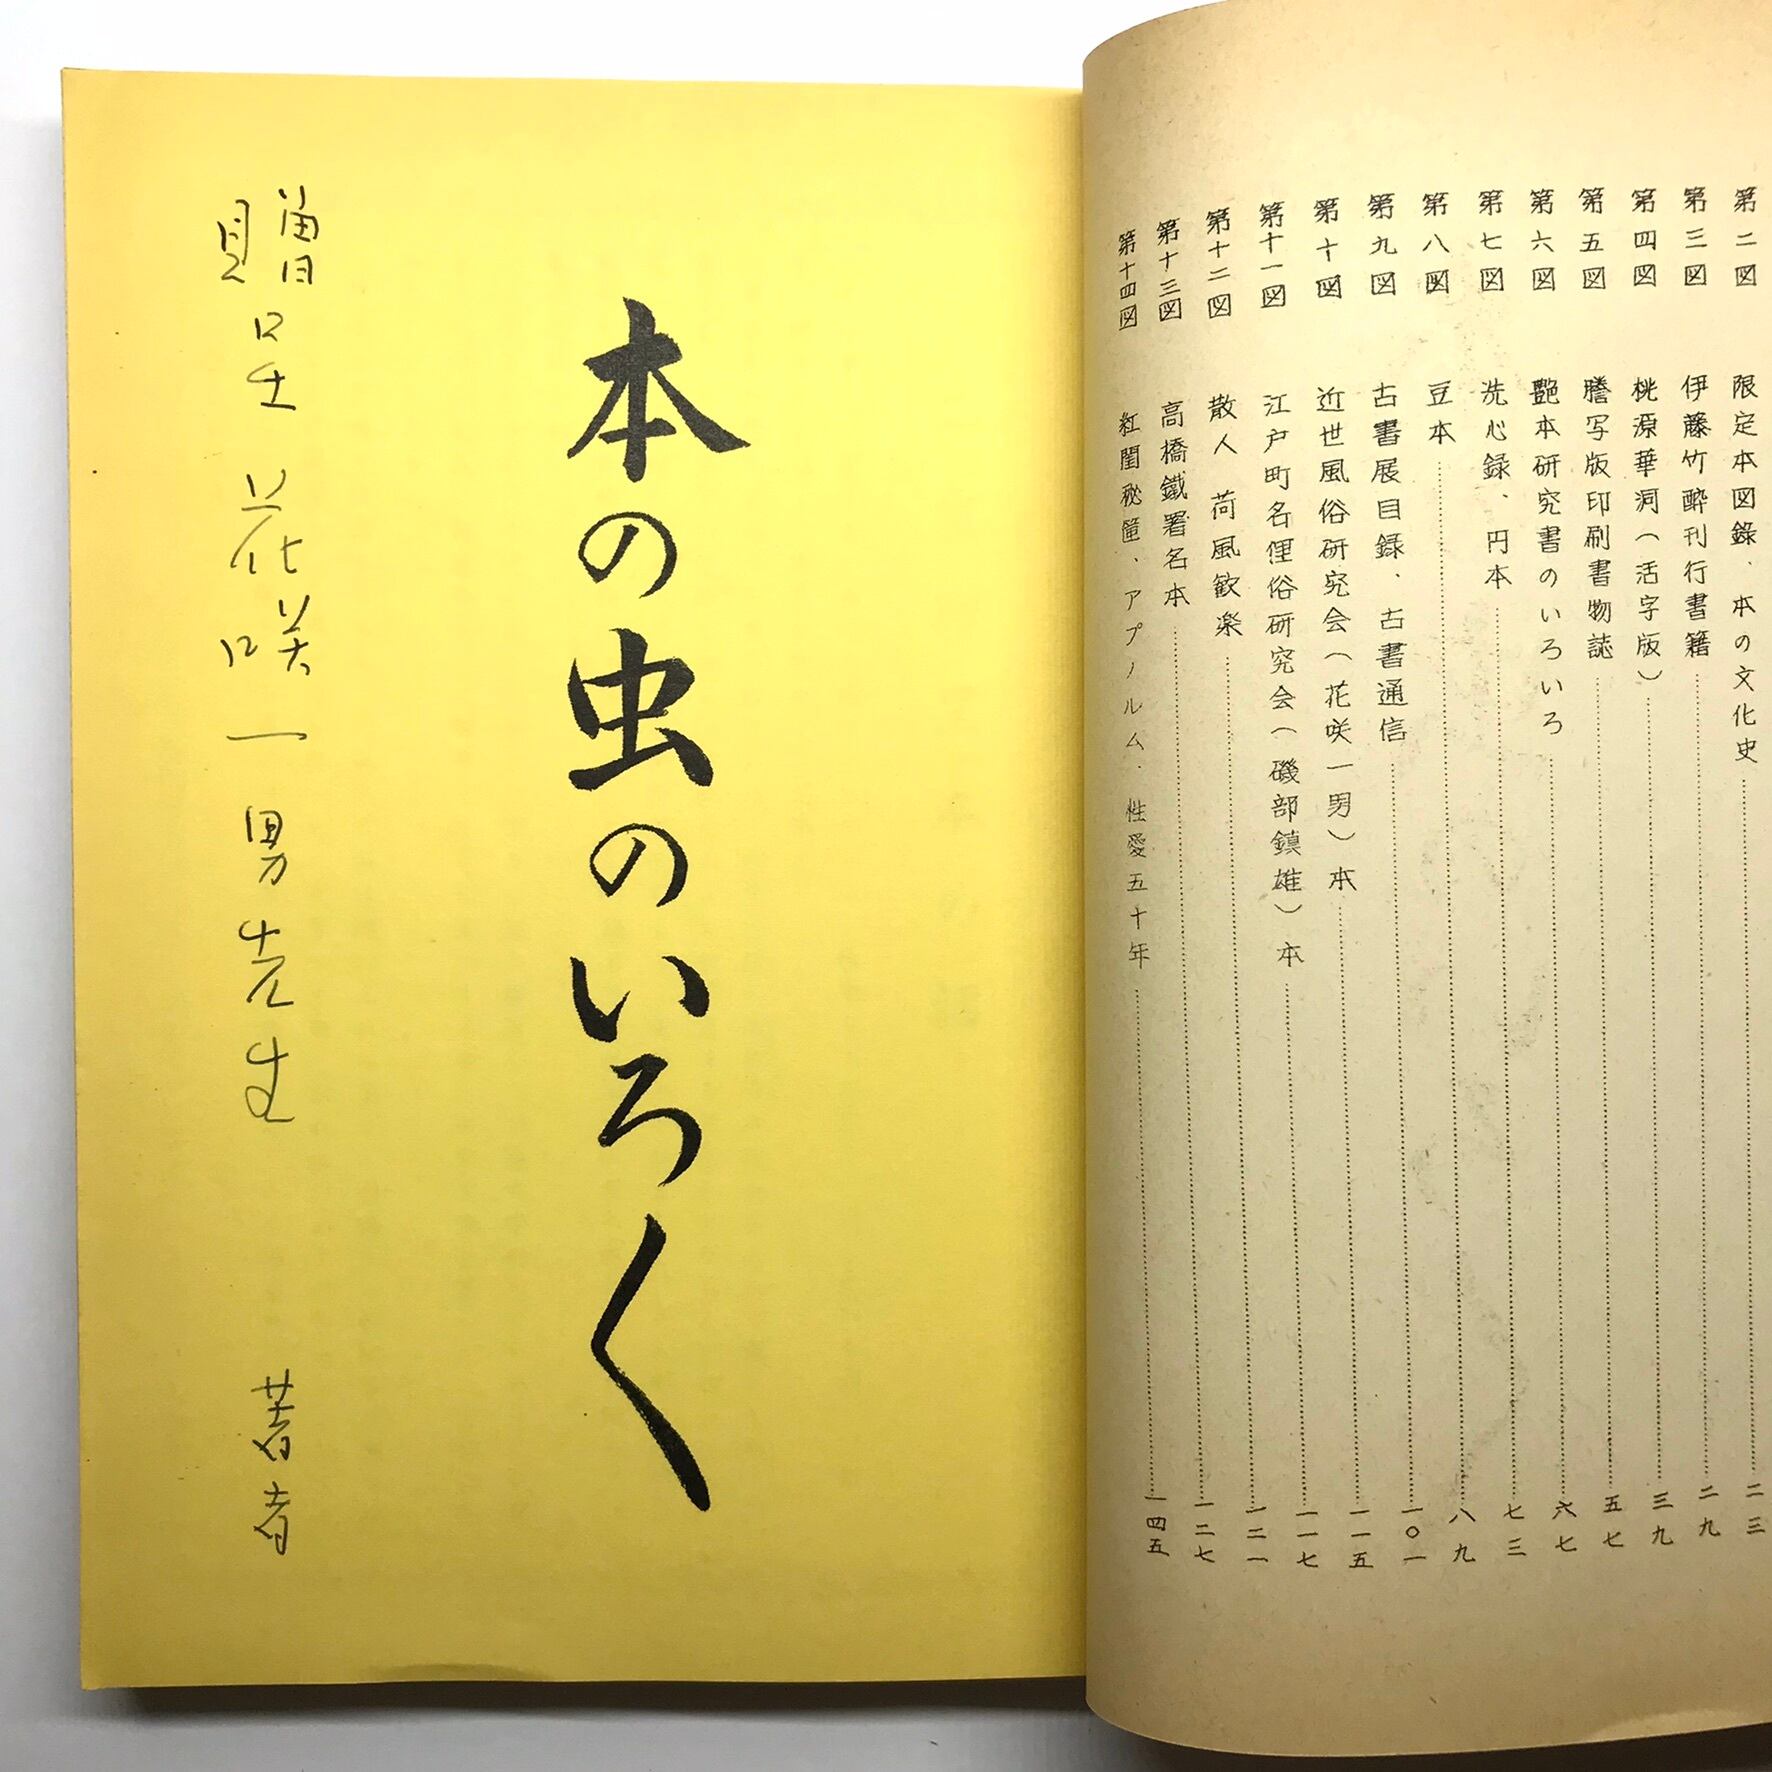 第二図 限定本図録、本の文化史 二三
第三図 伊藤竹酔刊行書籍 二九
第四図 桃源華洞（活字版） 三九
第五図 謄写版印刷書物誌 五七
第六図 艶本研究書のいろいろ 六七
第七図 洗心録、円本 七三
第八図 豆本 八九
第九図 古書展目録、古書通信 一〇一
第十図 近世風俗研究会（花咲一男）本 一一五
第十一図 江戸町名俚俗研究会（磯部鎮雄）本 一一七
第十二図 散人 荷風歓楽 一二一
第十三図 高橋鐵署名本 一二七
第十四図 紅閨秘筐、アプノルム、性愛五十年 一四五
本の虫のいろ〱
贈呈 花咲一男先生 著者